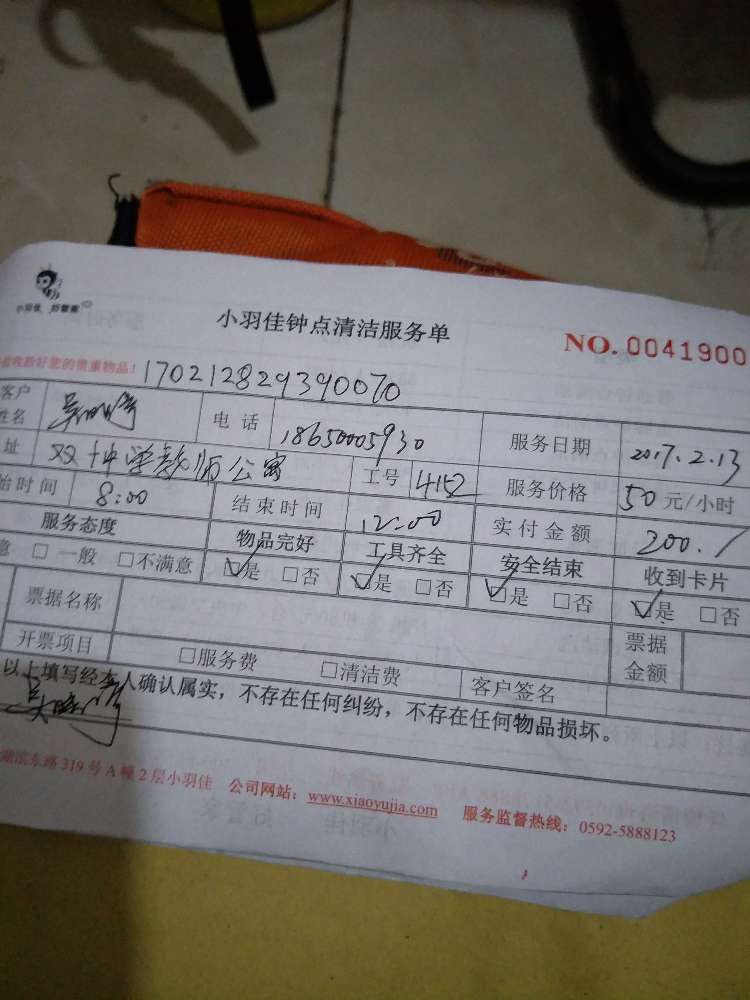 小羽佳 好管家
小羽佳钟点清洁服务单
NO. 0041900
收好您的贵重物品！ 170212829390070
客户姓名 吴 电话 18650005930 服务日期 2017.2.13
址 双十中学教师公寓 工号 4152 服务价格 50元/小时
始时间 8:00 结束时间 12:00 实付金额 200./
服务态度 物品完好 工具齐全 安全结束 收到卡片
意 □一般 □不满意 ☑是 □否 ☑是 □否 ☑是 □否 ☑是 □否
票据名称 票据金额
开票项目 □服务费 □清洁费 客户签名
以上填写经本人确认属实，不存在任何纠纷，不存在任何物品损坏。
吴
湖滨东路319号A幢2层小羽佳 公司网站：www.xiaoyujia.com 服务监督热线：0592-5888123